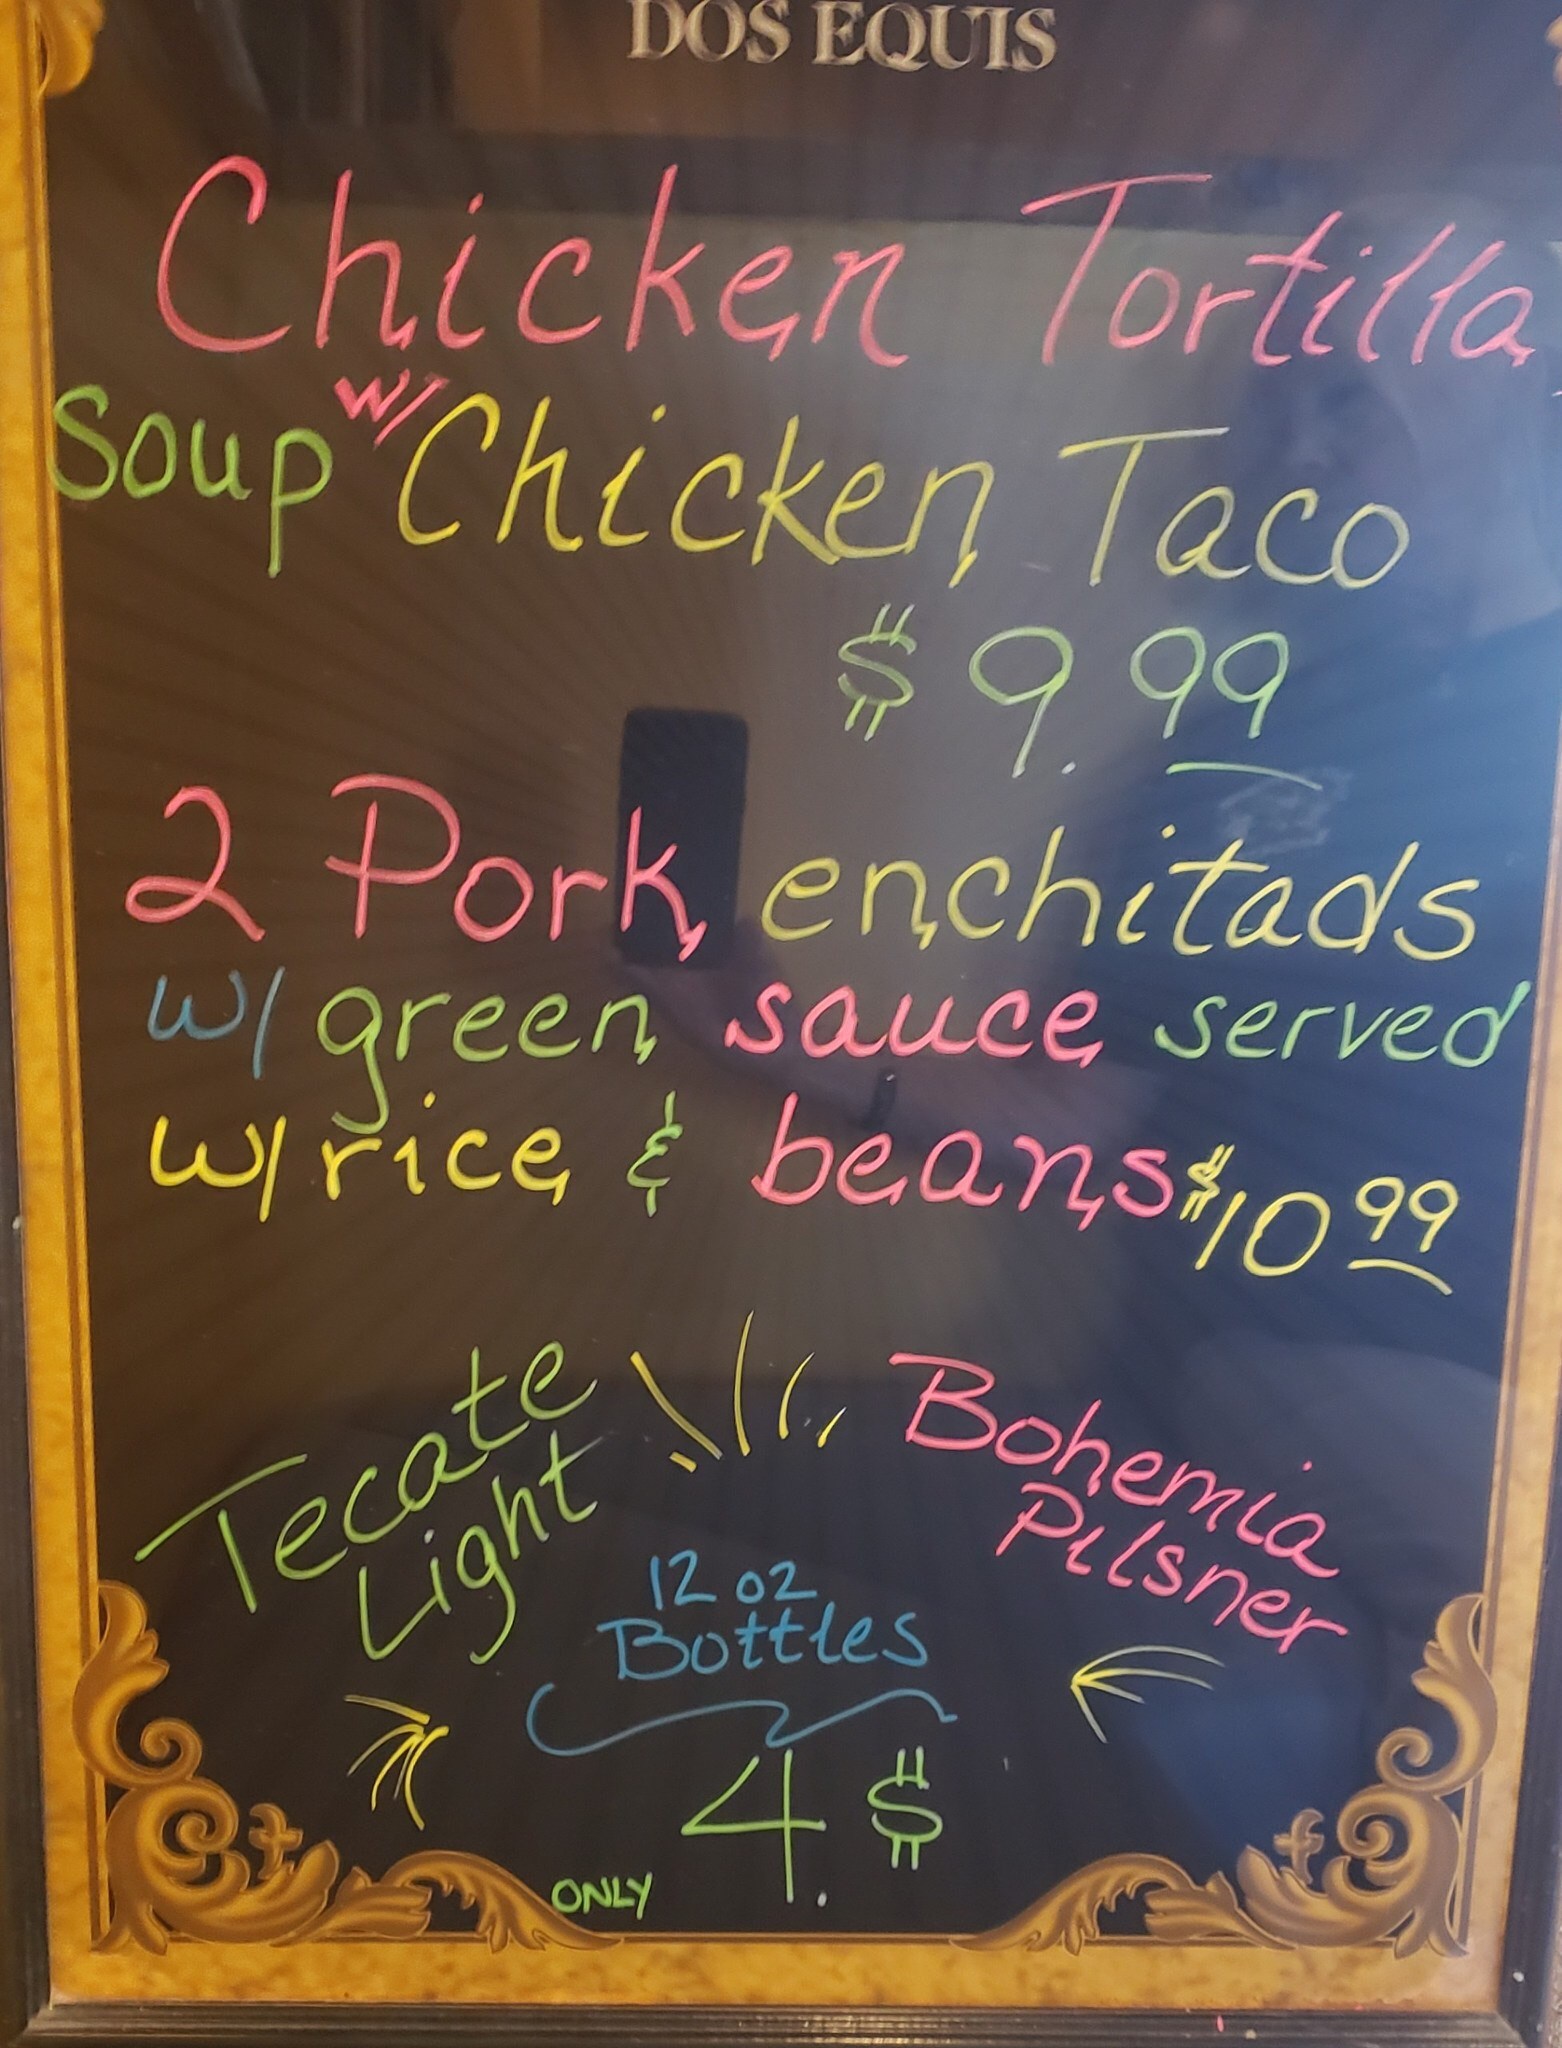 DOS EQUIS
Chicken Tortilla
Soup w/ Chicken Taco
$ 9.99
2 Pork enchitads
w/ green sauce served
w/ rice & beans $10 99
Tecate
Light
Bohemia
Pilsner
12 oz
Bottles
4. $
ONLY